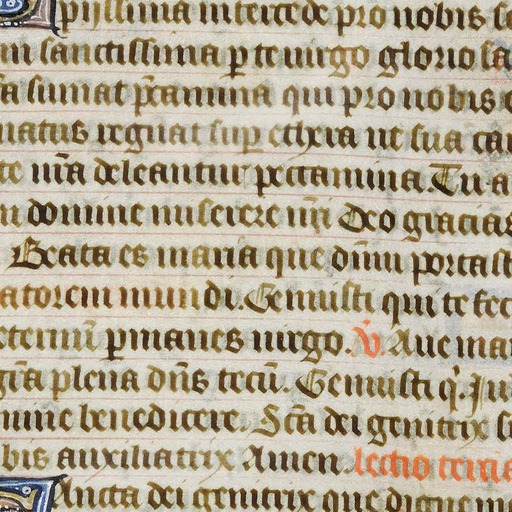 piissima intercede pro nobis
sanctissima p te uirgo glorio
sumat pcamina qui pro nobis
natus regnat sup ethera ut sua
te nra deleantur peccamina. Tu a
domine miserere nri Deo gracias
Beata es maria que dnm porta
atorem mundi. Genuisti qui te fec
eternu pmanes uirgo. V. Aue mar
gra plena dns tecu. Genuisti q. Iu
mne benedicere. Sca dei genitrix
bis auxiliatrix Amen lectio tercia
Sancta dei genitrix que digne